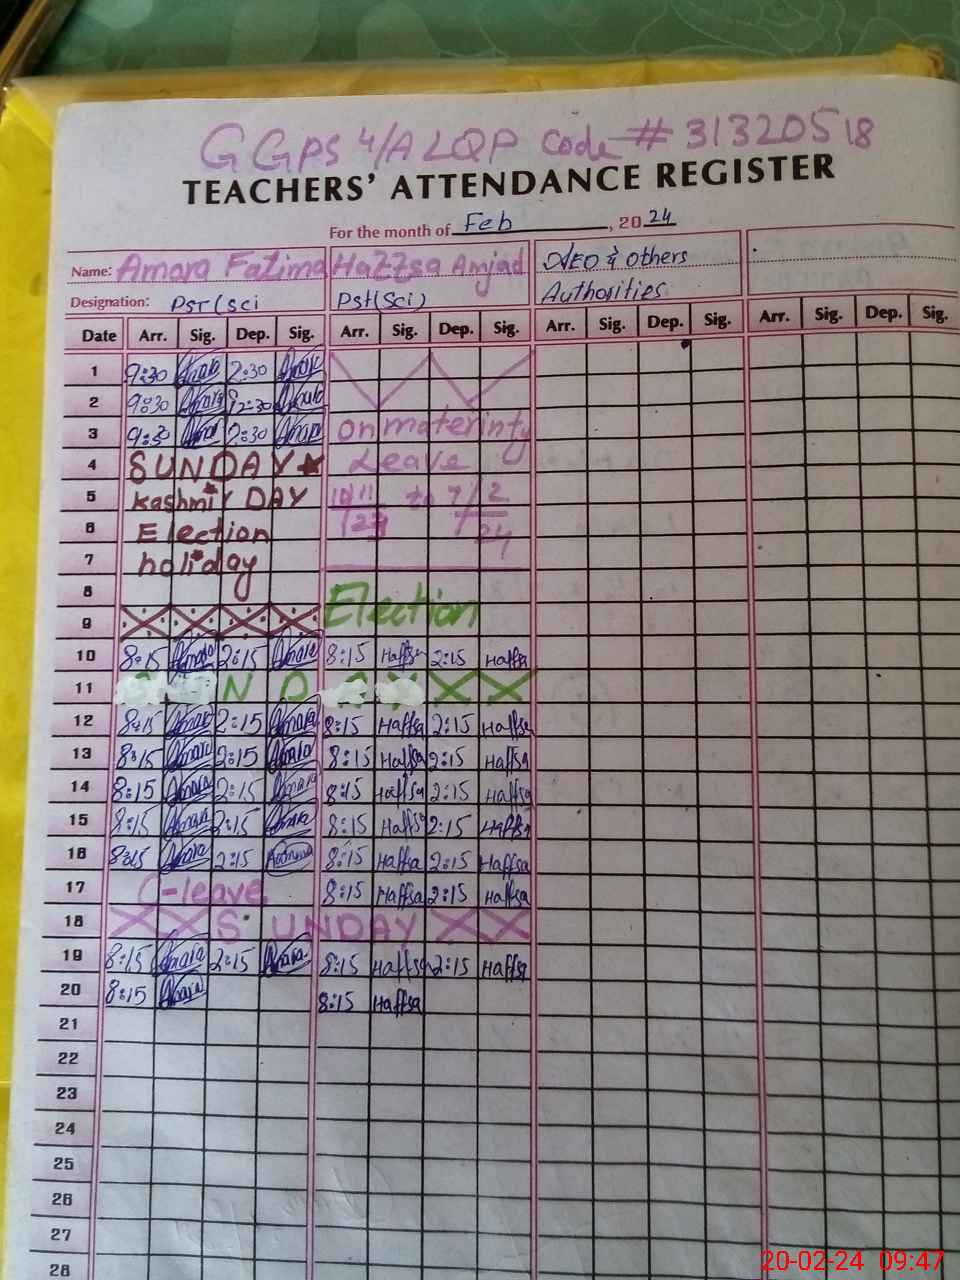 GGPS 4/A LQP Code # 31320518
TEACHERS' ATTENDANCE REGISTER
For the month of Feb, 2024
Name: Amara Fatima Hazzsa Amjad AEO & others
Designation: PST (Sci Pst(Sci) Authorities
Date Arr. Sig. Dep. Sig. Arr. Sig. Dep. Sig. Arr. Sig. Dep. Sig. Arr. Sig. Dep. Sig.
1 9:30 Amara 2:30 Amara
2 9:30 Amara 12:30 Amara
3 9:30 Amara 2:30 Amara on materinty
4 SUNDAY Leave
5 Kashmir DAY 10/11/23 to 7/2/24
6 Election
7 holiday
8 Election
9
10 8:15 Amara 2:15 Amara 8:15 Haffsa 2:15 Haffsa
11 SUNDAY
12 8:15 Amara 2:15 Amara 8:15 Haffsa 2:15 Haffsa
13 8:15 Amara 2:15 Amara 8:15 Haffsa 2:15 Haffsa
14 8:15 Amara 2:15 Amara 8:15 Haffsa 2:15 Haffsa
15 8:15 Amara 2:15 Amara 8:15 Haffsa 2:15 Haffsa
16 8:15 Amara 2:15 8:15 Haffsa 2:15 Haffsa
17 C-leave 8:15 Haffsa 2:15 Haffsa
18 SUNDAY
19 8:15 Amara 2:15 Amara 8:15 Haffsa 2:15 Haffsa
20 8:15 Amara 8:15 Haffsa
21
22
23
24
25
26
27
28
20-02-24 09:47